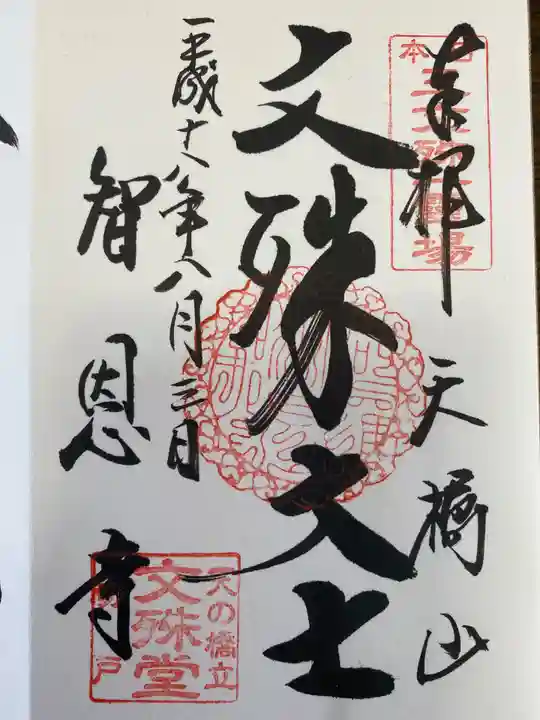 奉拝
天橋山
文殊大士
平成十八年八月三日
智恩寺
日本三文殊霊場
天の橋立
文殊堂
戸